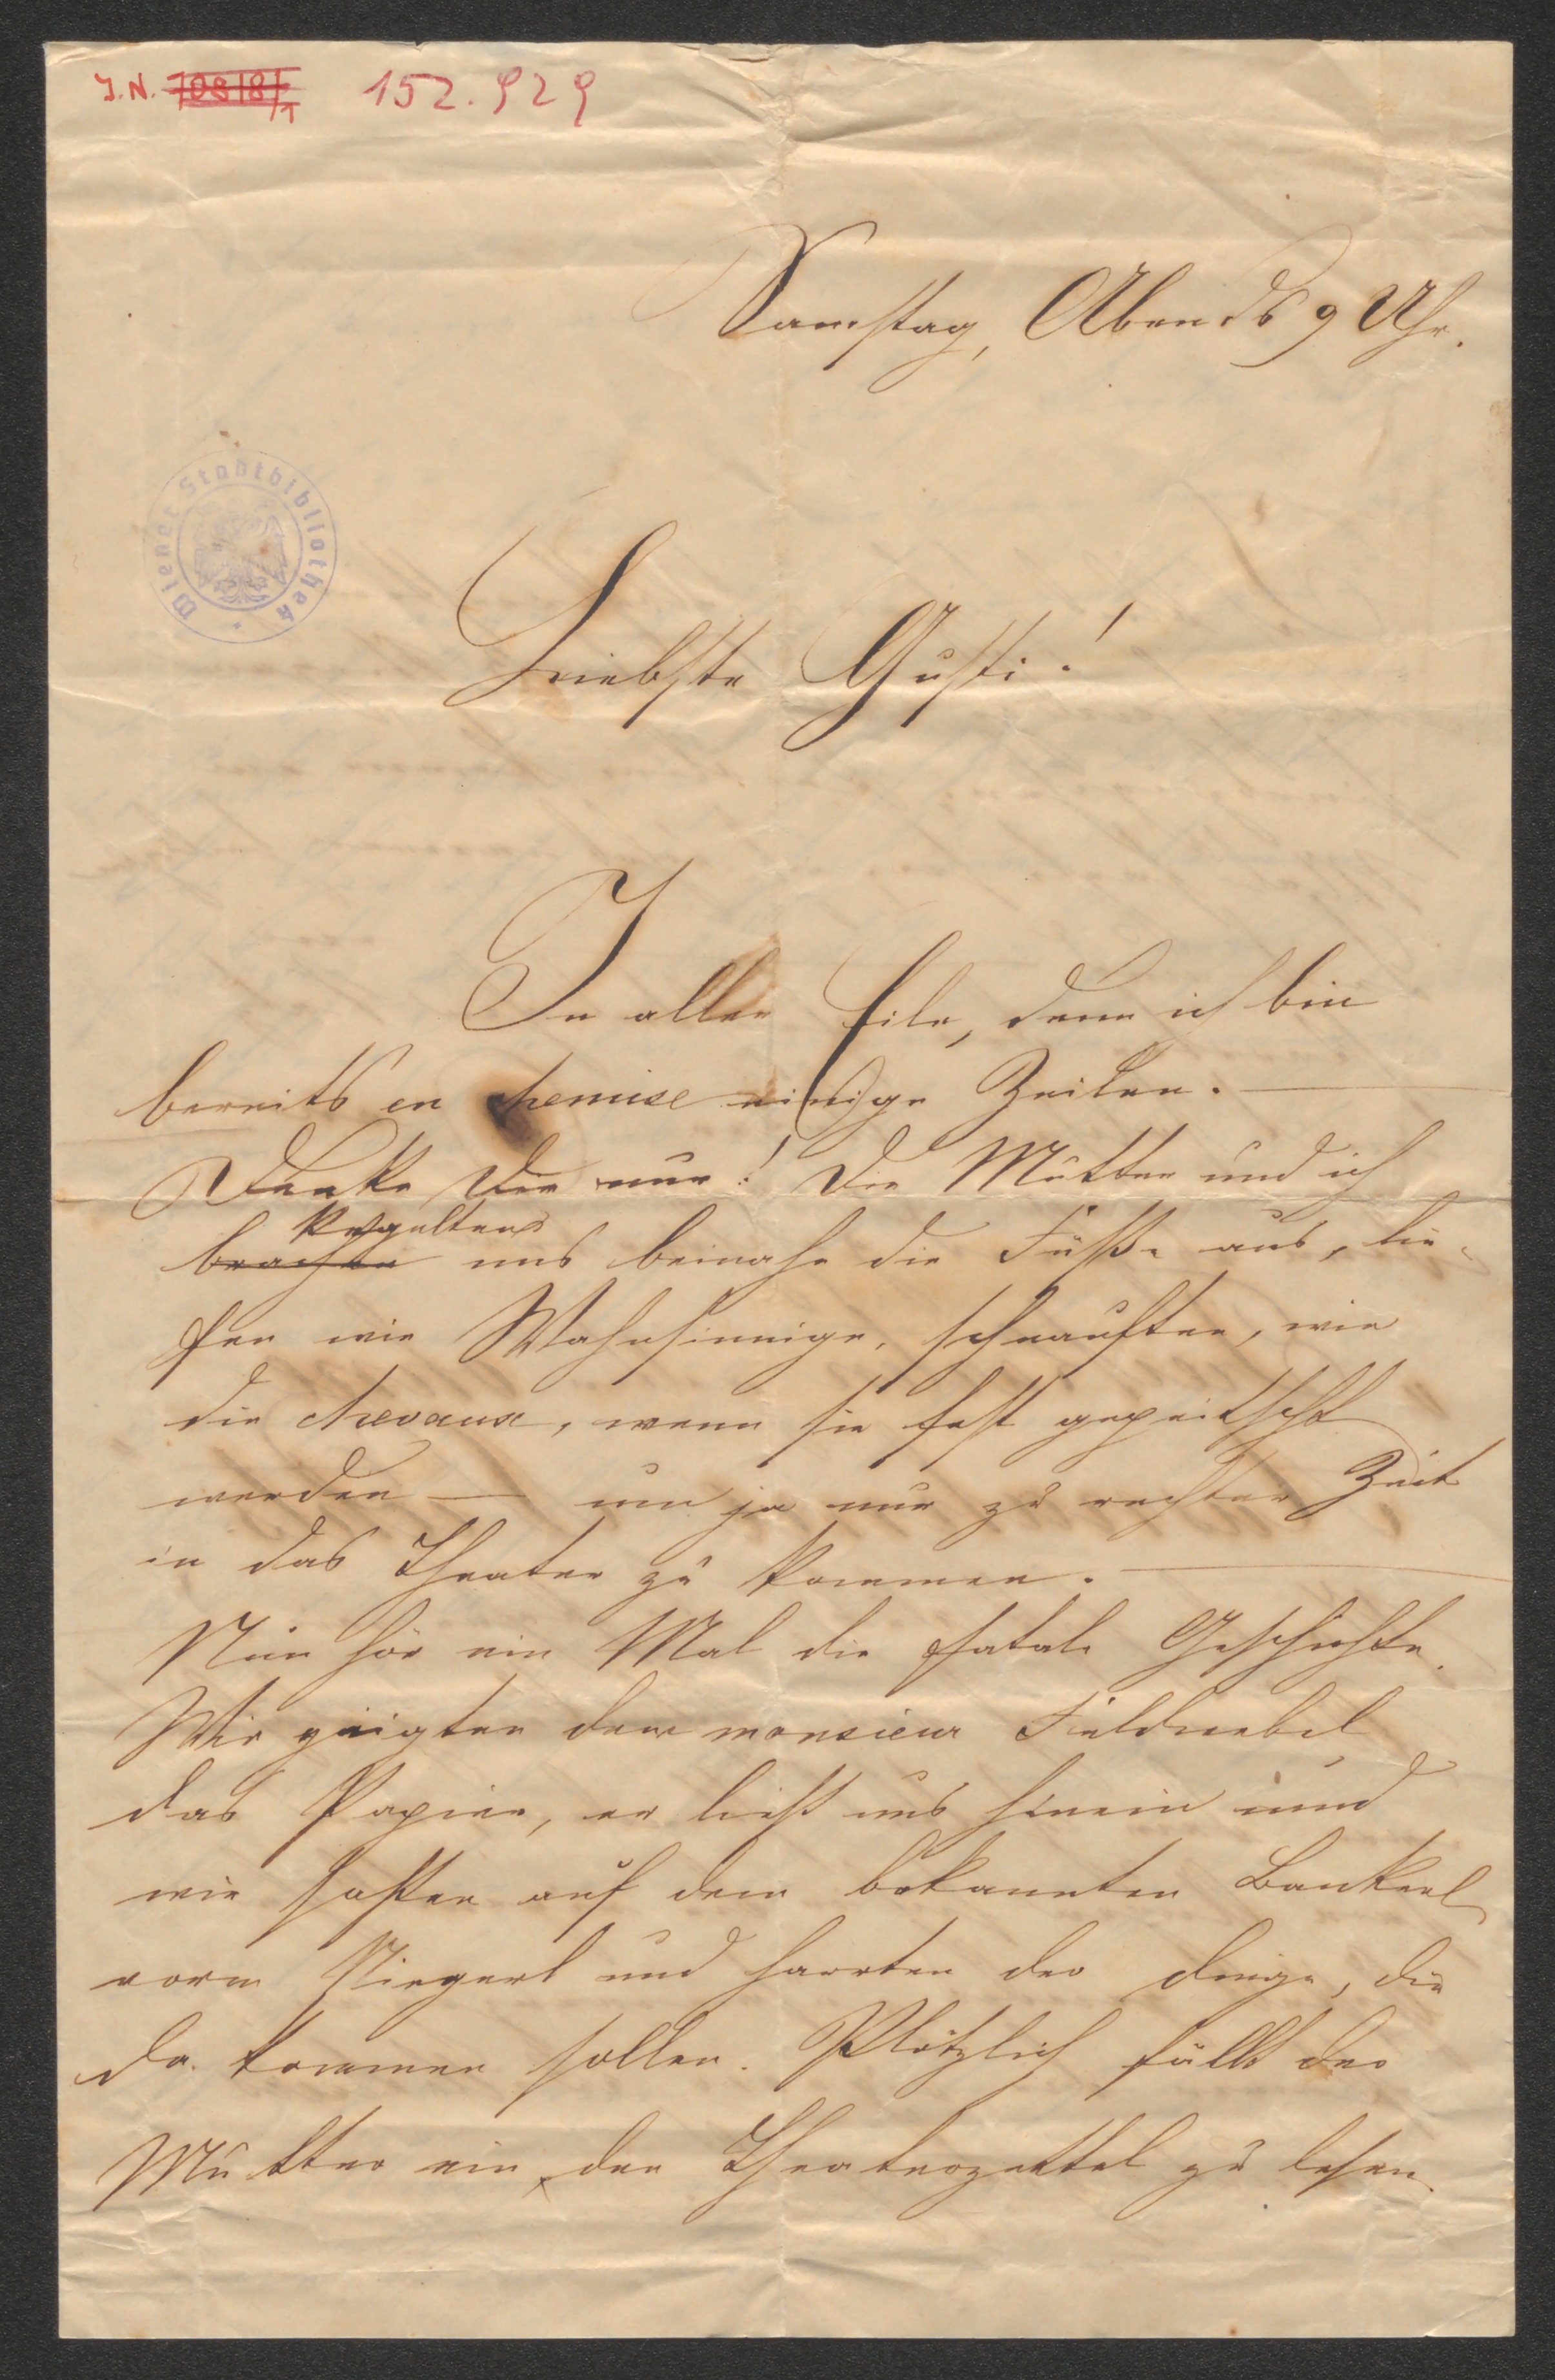 J.N. 70818/1 152.929
Samstag, Abends 9 Uhr.
Wiener Stadtbibliothek
Liebste Gusti!
In aller Eile, denn ich bin
bereits en chemise einige Zeilen. —
Denke Dir nur! Die Mutter und ich
kegelten
brachen uns beinahe die Füße aus, lie-
fen wie Wahnsinnige, schnauften, wie
die chevaux, wenn sie fest gepeitscht
werden — um ja nur zu rechter Zeit
in das Theater zu kommen. —
Nun hör ein Mal die fatale Geschichte.
Wir zeigten dem monsieur Feldwebel
das Papier, er ließ uns hinein und
wir saßen auf dem bekannten Bankerl
vorm Stiegerl und harrten der Dinge, die
da kommen sollen. Plötzlich fällt der
Mutter ein, den Theaterzettel zu lesen